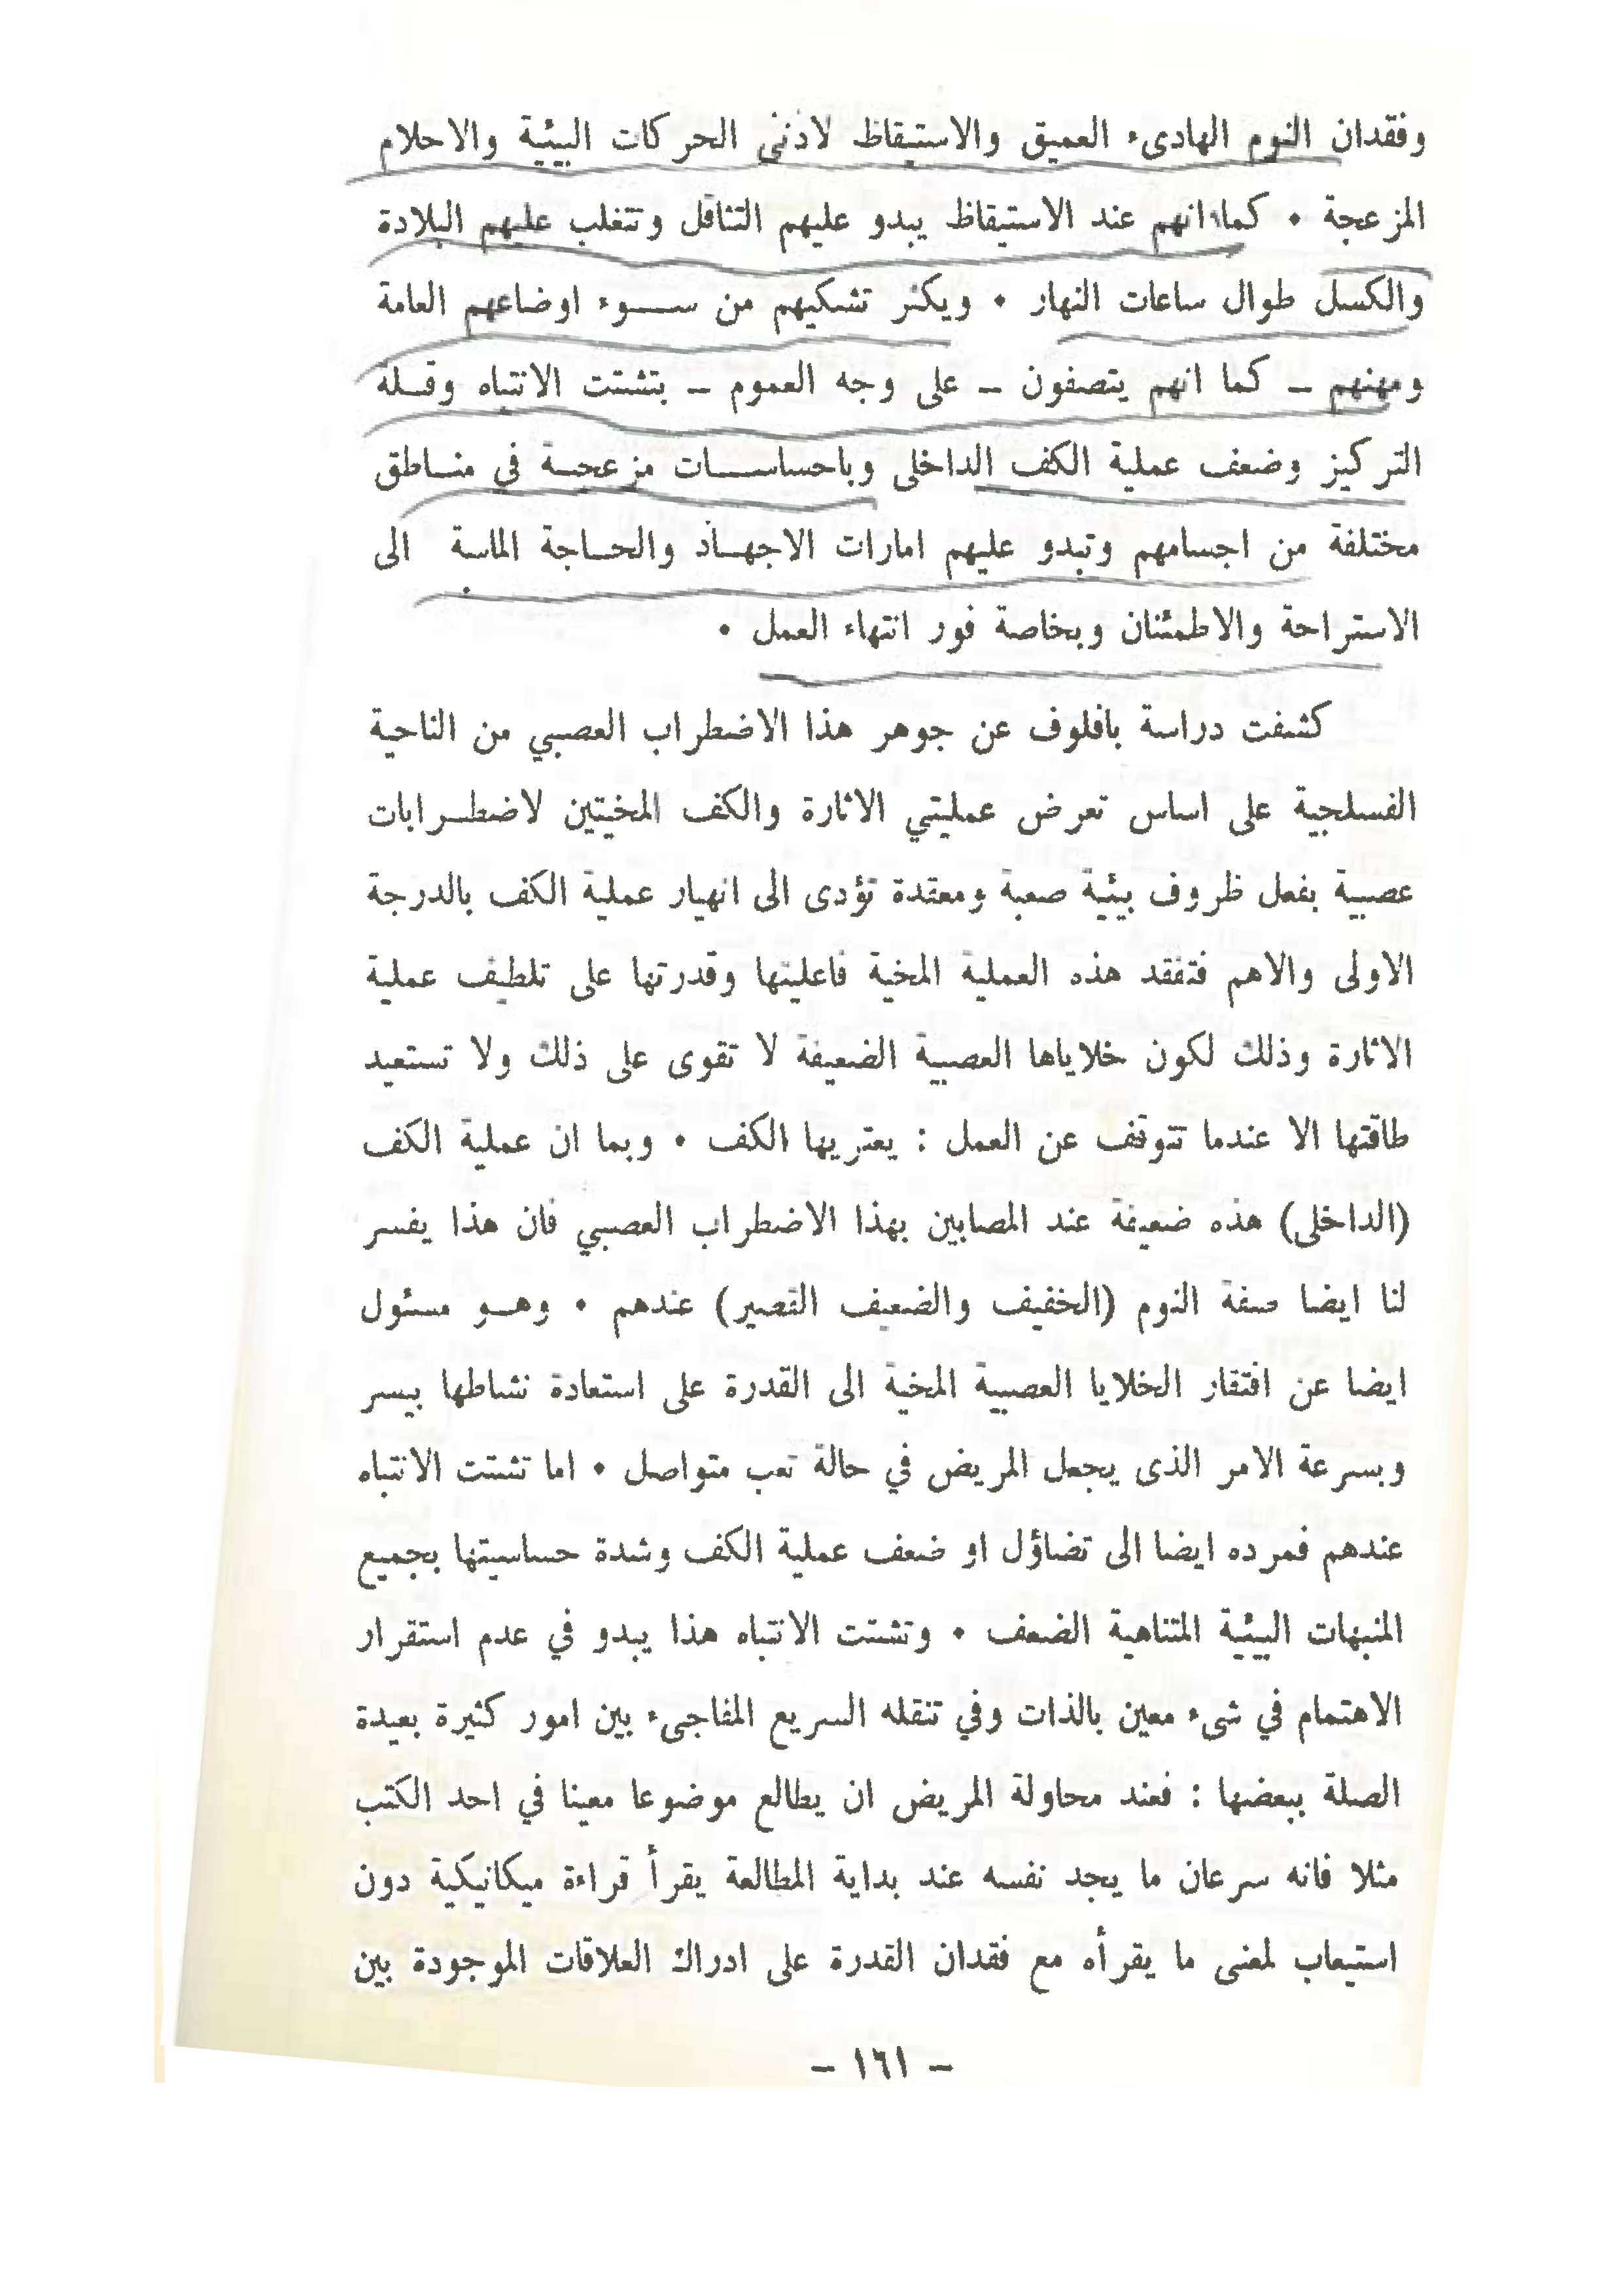 وفقدان النوم الهادىء العميق والاستيقاظ لادنى الحركات البيئية والاحلام
المزعجة ٠ كما انهم عند الاستيقاظ يبدو عليهم التثاقل وتتغلب عليهم البلادة
والكسل طوال ساعات النهار ٠ ويكثر تشكيهم من ســوء اوضاعهم العامة
ومهنهم ــ كما انهم يتصفون ــ على وجه العموم ــ بتشتت الانتباه وقــلة
التركيز وضعف عملية الكف الداخلى وباحساســات مزعجــة في منــاطق
مختلفة من اجسامهم وتبدو عليهم امارات الاجهــاد والحــاجة الماسة الى
الاستراحة والاطمئنان وبخاصة فور انتهاء العمل ٠
كشفت دراسة بافلوف عن جوهر هذا الاضطراب العصبي من الناحية
الفسلجية على اساس تعرض عمليتي الاثارة والكف المخيتين لاضطــرابات
عصبية بفعل ظروف بيئية صعبة ومعقدة تؤدى الى انهيار عملية الكف بالدرجة
الاولى والاهم فتفقد هذه العملية المخية فاعليتها وقدرتها على تلطيف عملية
الاثارة وذلك لكون خلاياها العصبية الضعيفة لا تقوى على ذلك ولا تستعيد
طاقتها الا عندما تتوقف عن العمل : يعتريها الكف ٠ وبما ان عملية الكف
(الداخلى) هذه ضعيفة عند المصابين بهذا الاضطراب العصبي فان هذا يفسر
لنا ايضا صفة النوم (الخفيف والضعيف القصير) عندهم ٠ وهــو مسئول
ايضا عن افتقار الخلايا العصبية المخية الى القدرة على استعادة نشاطها بيسر
وبسرعة الامر الذى يجعل المريض في حالة تعب متواصل ٠ اما تشتت الانتباه
عندهم فمرده ايضا الى تضاؤل او ضعف عملية الكف وشدة حساسيتها بجميع
المنبهات البيئية المتناهية الضعف ٠ وتشتت الانتباه هذا يبدو في عدم استقرار
الاهتمام في شىء معين بالذات وفي تنقله السريع المفاجىء بين امور كثيرة بعيدة
الصلة ببعضها : فعند محاولة المريض ان يطالع موضوعا معينا في احد الكتب
مثلا فانه سرعان ما يجد نفسه عند بداية المطالعة يقرأ قراءة ميكانيكية دون
استيعاب لمعنى ما يقرأه مع فقدان القدرة على ادراك العلاقات الموجودة بين
– ١٦١ –